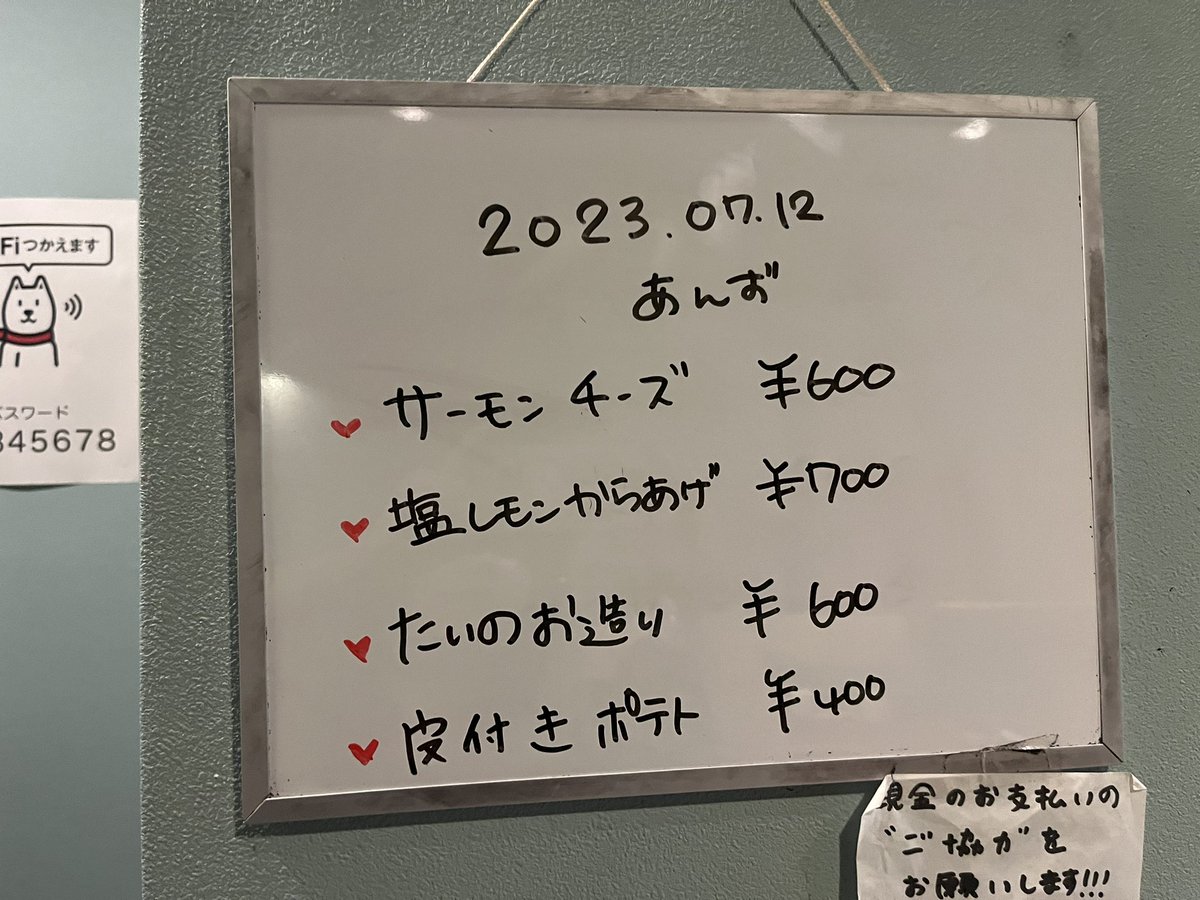 Fiつかえます
パスワード
345678
2023.07.12
あんず
サーモンチーズ ¥600
塩レモンからあげ ¥700
たいのお造り ¥600
皮付きポテト ¥400
現金のお支払いの
"ご協力"を
お願いします!!!